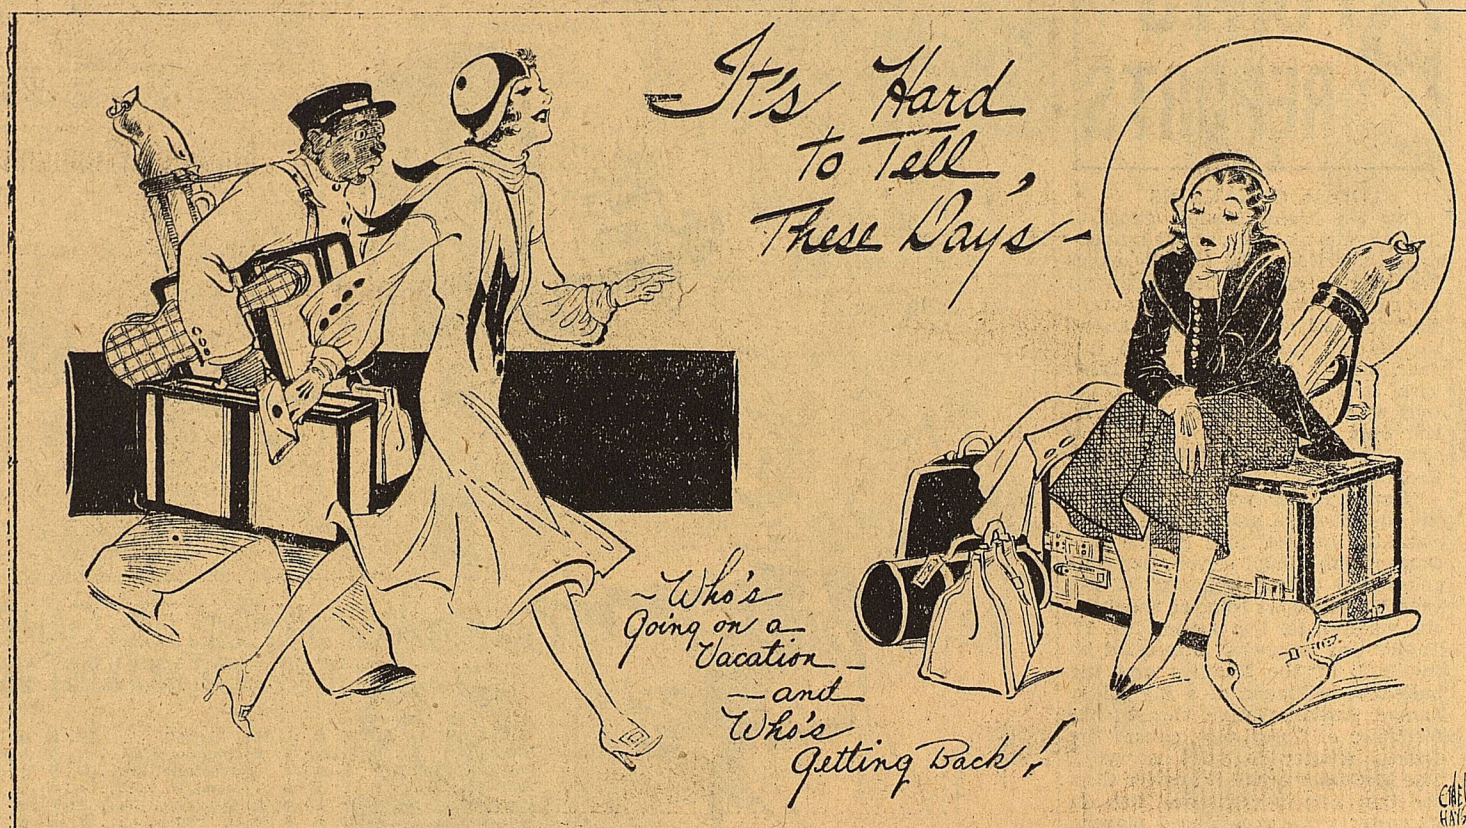 It's Hard
to Tell,
These Days-
~Who's
Going on a
Vacation-
-and
Who's
Getting Back!
ETHEL
HAYS